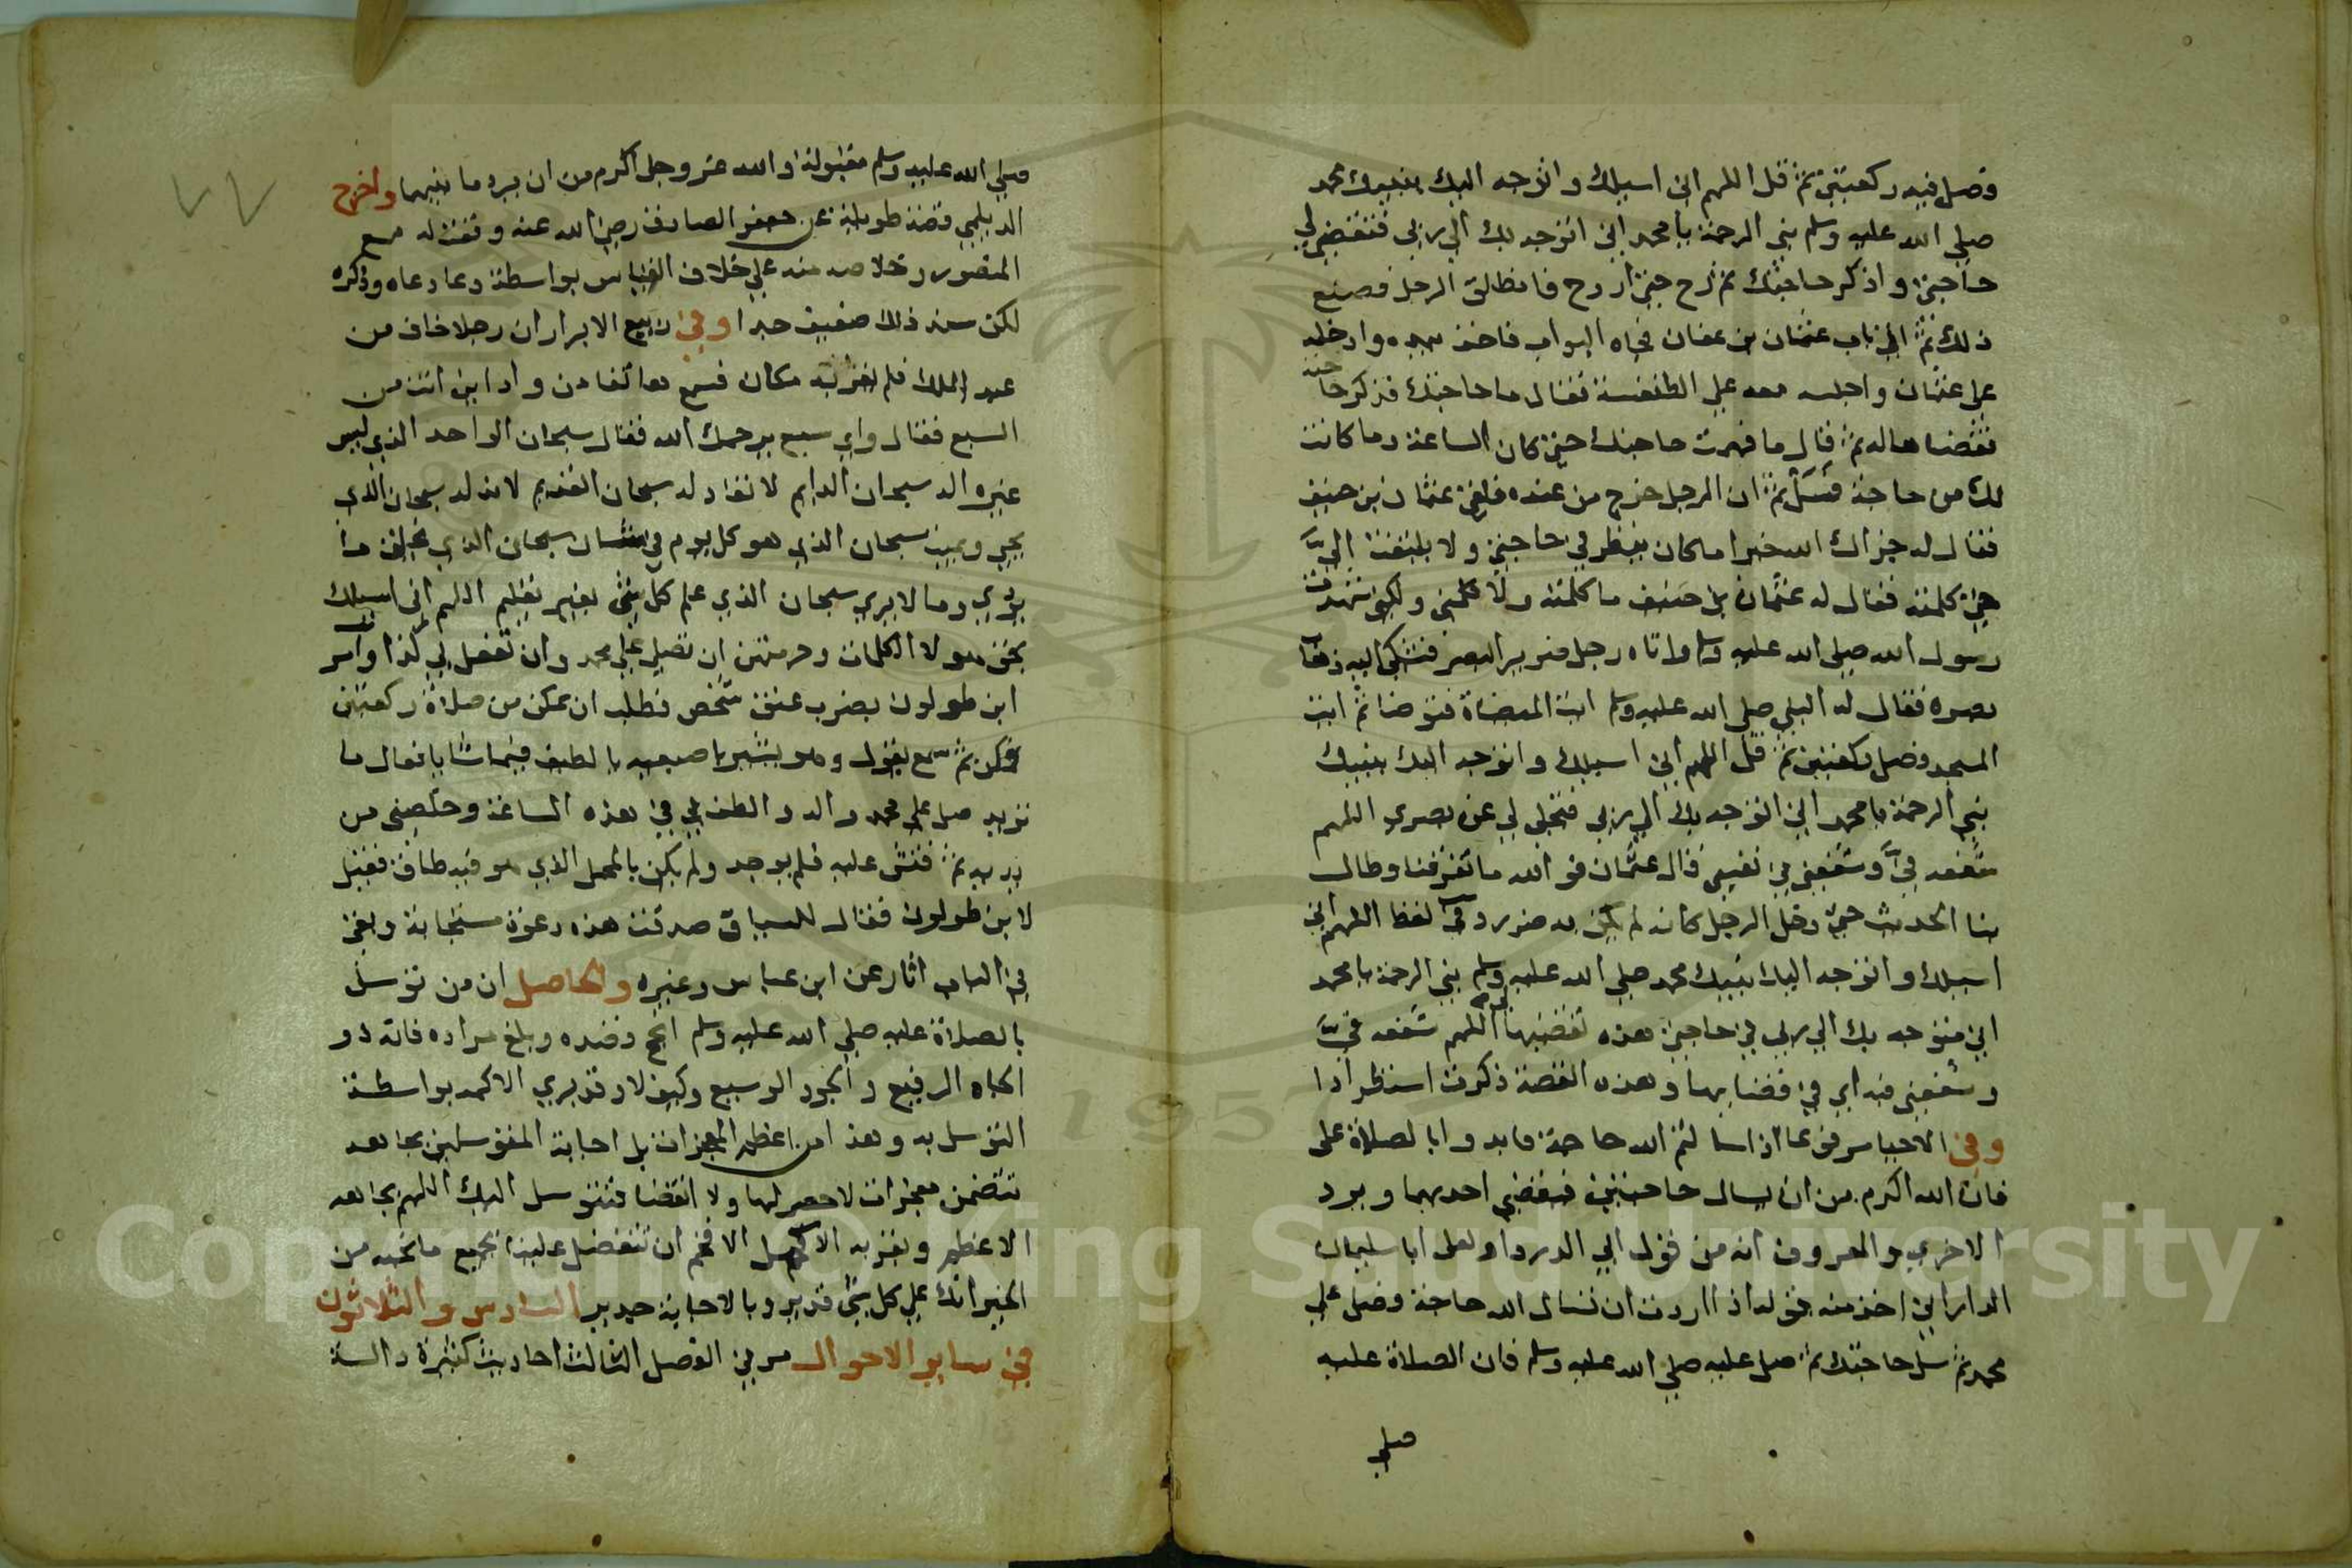 فصل فيه ركعتين ثم قل اللهم اني اسيلك واتوجه اليك بنبيك محمد
صلي الله عليه وسلم نبي الرحمة يا محمد اني اتوجه بك الي ربي فتقضي لي
حاجتي واذكر حاجتك ثم رح حتي اروح فانطلق الرجل فصنع
ذلك ثم اتي باب عثمان بن عفان فجاه البواب فاخذ بيده وادخله
على عثمان واجلسه معه علي الطنفسة فقال ما حاجتك فذكر حاجته
فقضاها له ثم قال ما فهمت حاجتك حتي كان الساعة وما كانت
لك من حاجة فسل ثم ان الرجل خرج من عنده فلقي عثمان بن حنيف
فقال له جزاك الله خيرا ما كان ينظر في حاجتي ولا يلتفت اليَّ
حتي كلمته فقال له عثمان بن حنيف ما كلمته ولا كلمني ولكني شهدت
رسول الله صلي الله عليه وسلم واتاه رجل ضرير البصر فشكى اليه ذهاب
بصره فقال له النبي صلى الله عليه وسلم ايت الميضاة فتوضا ثم ايت
المسجد فصل ركعتين ثم قل اللهم اني اسيلك واتوجه اليك بنبيك
نبي الرحمة يا محمد اني اتوجه بك الي ربي فتجلي لي عن بصري اللهم
شفعه فيَّ وشفعني في نفسي قال عثمان فوالله ما تفرقنا وطال
بنا الحديث حتي دخل الرجل كانه لم يكن به ضرر وفي لفظ اللهم اني
اسيلك واتوجه اليك بنبيك محمد صلي الله عليه وسلم نبي الرحمة يا محمد
اني متوجه بك الي ربي في حاجتي هذه تقضيها لي اللهم شفعه فيَّ
وشفعني فيه اي في قضايها وهذه القصة ذكرت استطرادا
وفي الاحيا مرفوعا اذا سالتم الله حاجة فابدوا بالصلاة على
فان الله اكرم من ان يسال حاجتين فيقضي احديهما ويرد
الاخري والمعروف انه من قول ابي الدرداء ولعل ابا سليمان
الداراني اخذ منه قوله اذا اردت ان تسال الله حاجة فصل علي
محمد ثم سل حاجتك ثم صل عليه صلي الله عليه وسلم فان الصلاة عليه
صلي
٧٧
صلي الله عليه وسلم مقبولة والله عز وجل اكرم من ان يرد ما بينهما واخرج
الديلمي قصة طويلة عن جعفر الصادق رضي الله عنه وقعت له مع
المنصور وخلاصه منه علي خلاف القياس بواسطة دعا دعاه وذكره
لكن سند ذلك ضعيف جدا وفي ربيع الابرار ان رجلا خاف من
عبد الملك فلم يقر به مكان فسمع هاتفا من واد اين انت من
السبع فقال واي سبع يرحمك الله فقال سبحان الواحد الذي ليس
غيره اله سبحان الدايم لا نفاد له سبحان القديم لا بد له سبحان الذي
يحيي ويميت سبحان الذي هو كل يوم في شان سبحان الذي يخلق ما
يري وما لا يري سبحان الذي علم كل شي بغير تعليم اللهم اني اسيلك
بحق هولا الكلمات وحرمتهن ان تصلي علي محمد وان تفعل لي كذا وامر
ابن طولون بضرب عنق شخص فطلب ان يمكن من صلاة ركعتين
فمكن ثم سمع يقول وهو يشير باصبعيه يا لطيف فيما شا يا فعال ما
نريد صل على محمد واله والطف بي في هذه الساعة وخلصني من
يديه ثم فتش عليه فلم يوجد ولم يكن بالمحل الذي هو فيه طاق فقيل
لابن طولون فقال للسياف صدقت هذه دعوة مستجابة وبقي
في الباب اثار عن ابن عباس وغيره والحاصل ان من توسل
بالصلاة عليه صلي الله عليه وسلم انجح قصده وبلغ مراده فانه ذو
الجاه الرفيع والجود الوسيع وكيف لا وقد يري الاكمه بواسطة
التوسل به وهذا من اعظم المعجزات بل اجابة المتوسلين بجاهه
تتضمن معجزات لا حصر لها ولا انقضا فنتوسل اليك اللهم بجاهه
الاعظم وبقربه الاكمل الافخم ان تتفضل علينا بجميع ما نحبه من
الخير انك علي كل شي قدير وبالاجابة جدير السادس والثلاثون
في ساير الاحوال مر في الفصل الثالث احاديث كثيرة دالة
Copyright © King Saud University
1957